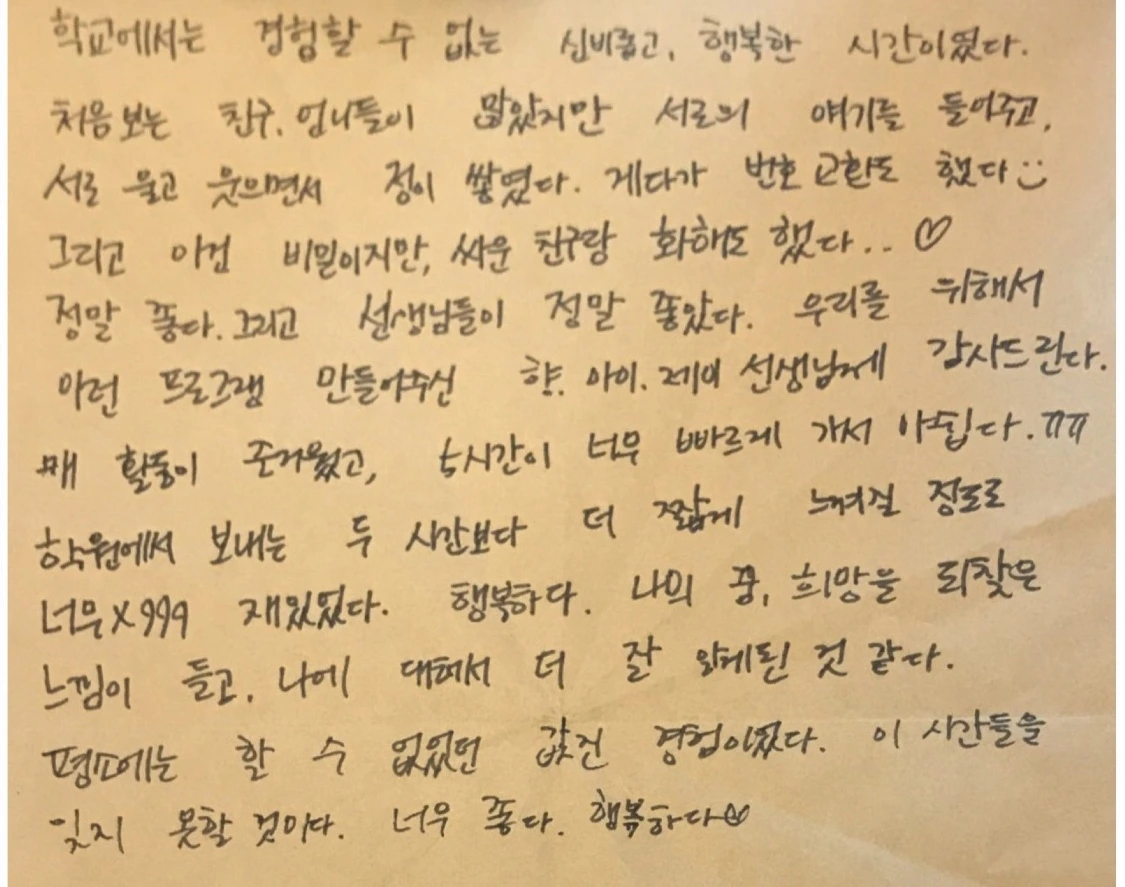 학교에서는 경험할 수 없는 신비롭고, 행복한 시간이였다.
처음보는 친구. 언니들이 많았지만 서로의 얘기를 들어주고,
서로 울고 웃으면서 정이 쌓였다. 게다가 번호 교환도 했다
그리고 이건 비밀이지만, 싸운 친구랑 화해도 했다.. ♡
정말 좋다. 그리고 선생님들이 정말 좋았다. 우리를 위해서
이런 프로그램 만들어주신 향. 아이. 제이 선생님께 감사드린다.
매 활동이 즐거웠고, 5시간이 너무 빠르게 가서 아쉽다.ㅠㅠ
학원에서 보내는 두 시간보다 더 짧게 느껴질 정도로
너무×999 재밌었다. 행복하다. 나의 꿈, 희망을 되찾은
느낌이 들고, 나에 대해서 더 잘 알게된 것 같다.
평소에는 할 수 없었던 값진 경험이었다. 이 시간들을
잊지 못할 것이다. 너무 좋다. 행복하다♡